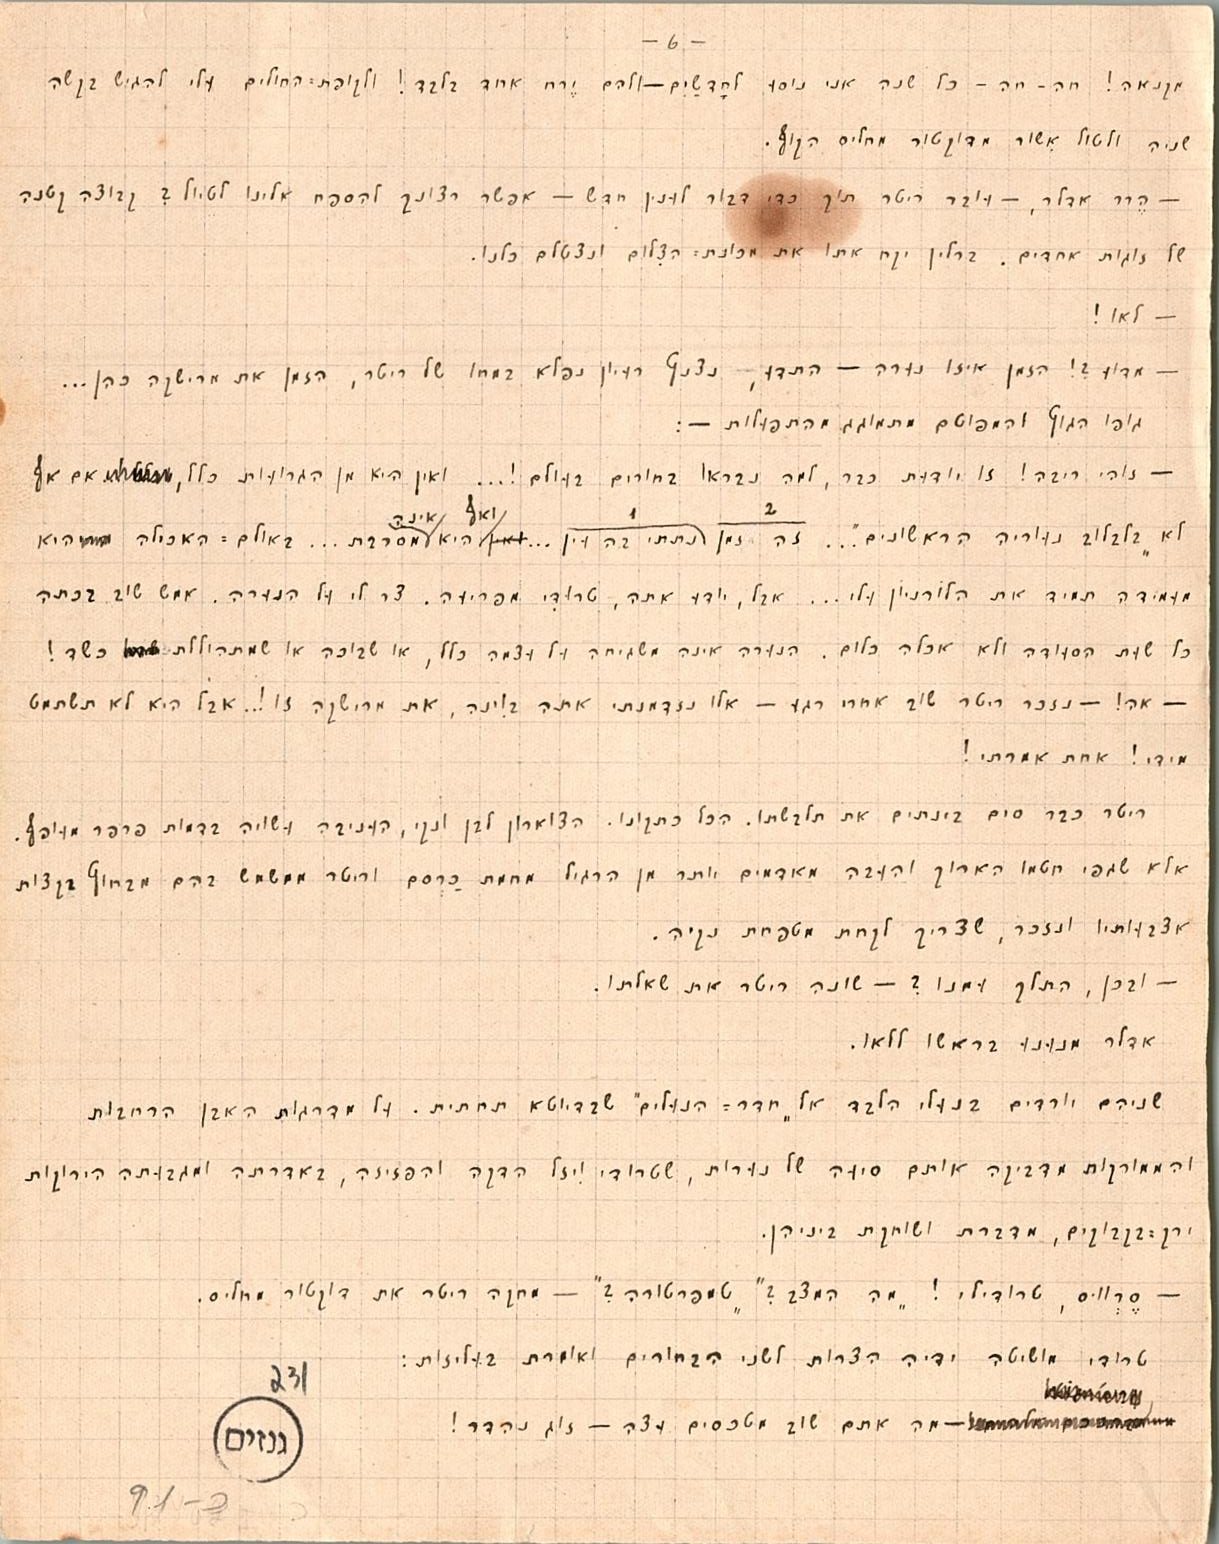 – 6 –
מקנאה! חה-חה – כל שנה אני נוסע לחָדשַיִם – ולהם יֶרח אחד בלבד! ולקופת=החולים עלי להגיש בקשה
שניה ולטול אִשור מדוקטור מחליס הקוף.
– הֶרר אדלר, – עובר ריטר תוך כדי דבור לענין חדש – אפשר רצונך להספח אלינו לטיול? קבוצה קטנה
של זוגות אחדים. ברלין יקח אתו את מכונת=הצִלום ונצטלם כלנו.
– לאו!
– מדוע?! הזמן איזו נערה – התדע, נצנץ רעיון נפלא במחו של ריטר, הזמן את מרישקה כהן...
גופו הגוץ והמפוטם מתמוגג מהתפעלות –:
– זוהי ריבה! זו יודעת כבר, למה נבראו בחורים בעולם!... ואין היא מן הגרועות כלל, אם אף
ואף אינה 1 2
לא „בלבלוב נעוריה הראשונים"... זה זמן נתתי בה עין... היא מסרבת... באולם=האכילה היא
מעמידה תמיד את הלורניון עלי... אבל, יודע אתה, טרודִי מפריעה. צר לי על הנערה. אמש שוב בכתה
כל שעת הסעודה ולא אכלה כלום. הנערה אינה משגיחה על עצמה כלל, או שבוכה או שמתהוללת כשד!
– אה! – נזכר ריטר שוב אחרי רגע – אלו נזדמנתי אתה בוינה, את מרישקה זו!.. אבל היא לא תשתמט
מידי! אחת אמרתי!
ריטר כבר סים בינתים את תלבשתו. הכל כתקונו. הצוארון לבן ונקי, העניבה עשויה בדמות פרפר מעופף.
אלא שגפי חטמו הארוך והעבה מאדמים יותר מן הרגיל מחמת כַרְסם וריטר ממשמש בהם מבחוץ בקצות
אצבעותיו ונזכר, שצריך לקחת מטפחת נקיה.
– ובכן, התלך עמנו? – שונה ריטר את שאלתו.
אדלר מנענע בראשו ללאו.
שניהם יורדים בנעלי הלבד אל „חדר=הנעלים" שבדיוטא תחתית. על מדרגות האבן הרחבות
והממורקות מדביקה אותם סיעה של נערות, שטרודי ויזל הדקה והפזיזה, באדרתה ומגבעתה הירוקות
ירק=בקבוקים, מדברת ושוחקת ביניהן.
– סֶרְוויס, טרודילי! „מה המצב?" „טמפרטורה?" – מחקה ריטר את דוקטור מחליס.
טרודי מושיטה ידיה הצרות לשני הבחורים ואומרת בעליזות:
– מה אתם שוב מטכסים עצה – זוג נהדר!
231
גנזים